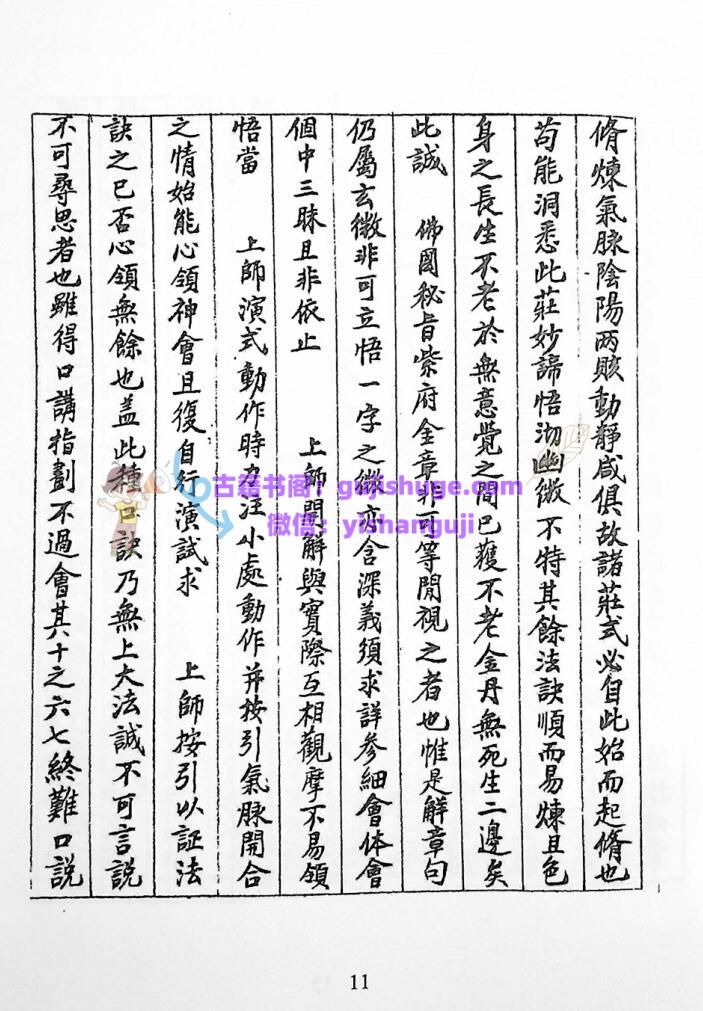 脩煉氣脉陰陽兩賅動靜咸俱故諸莊式必自此始而起脩也
苟能洞悉此莊妙諦悟沏幽微不特其餘法訣順而易煉且色
身之長生不老於無意覺之間已獲不老金丹無死生二邊矣
此誠　佛國秘旨紫府金章非可等閒視之者也惟是解章句
仍屬玄微非可立悟一字之微亦含深義須求詳參細會体會
個中三昧且非依止　上師開解與實際互相觀摩不易領
悟當　上師演式動作時 小處動作并按引氣脉開合
之情始能心領神會且復自行演試求　上師按引以証法
訣之已否心領無餘也盖此種口訣乃無上大法誠不可言説
不可尋思者也雖得口講指劃不過會其十之六七終難口説
古籍书阁：gujishuge.com
微信：yihanguji
11